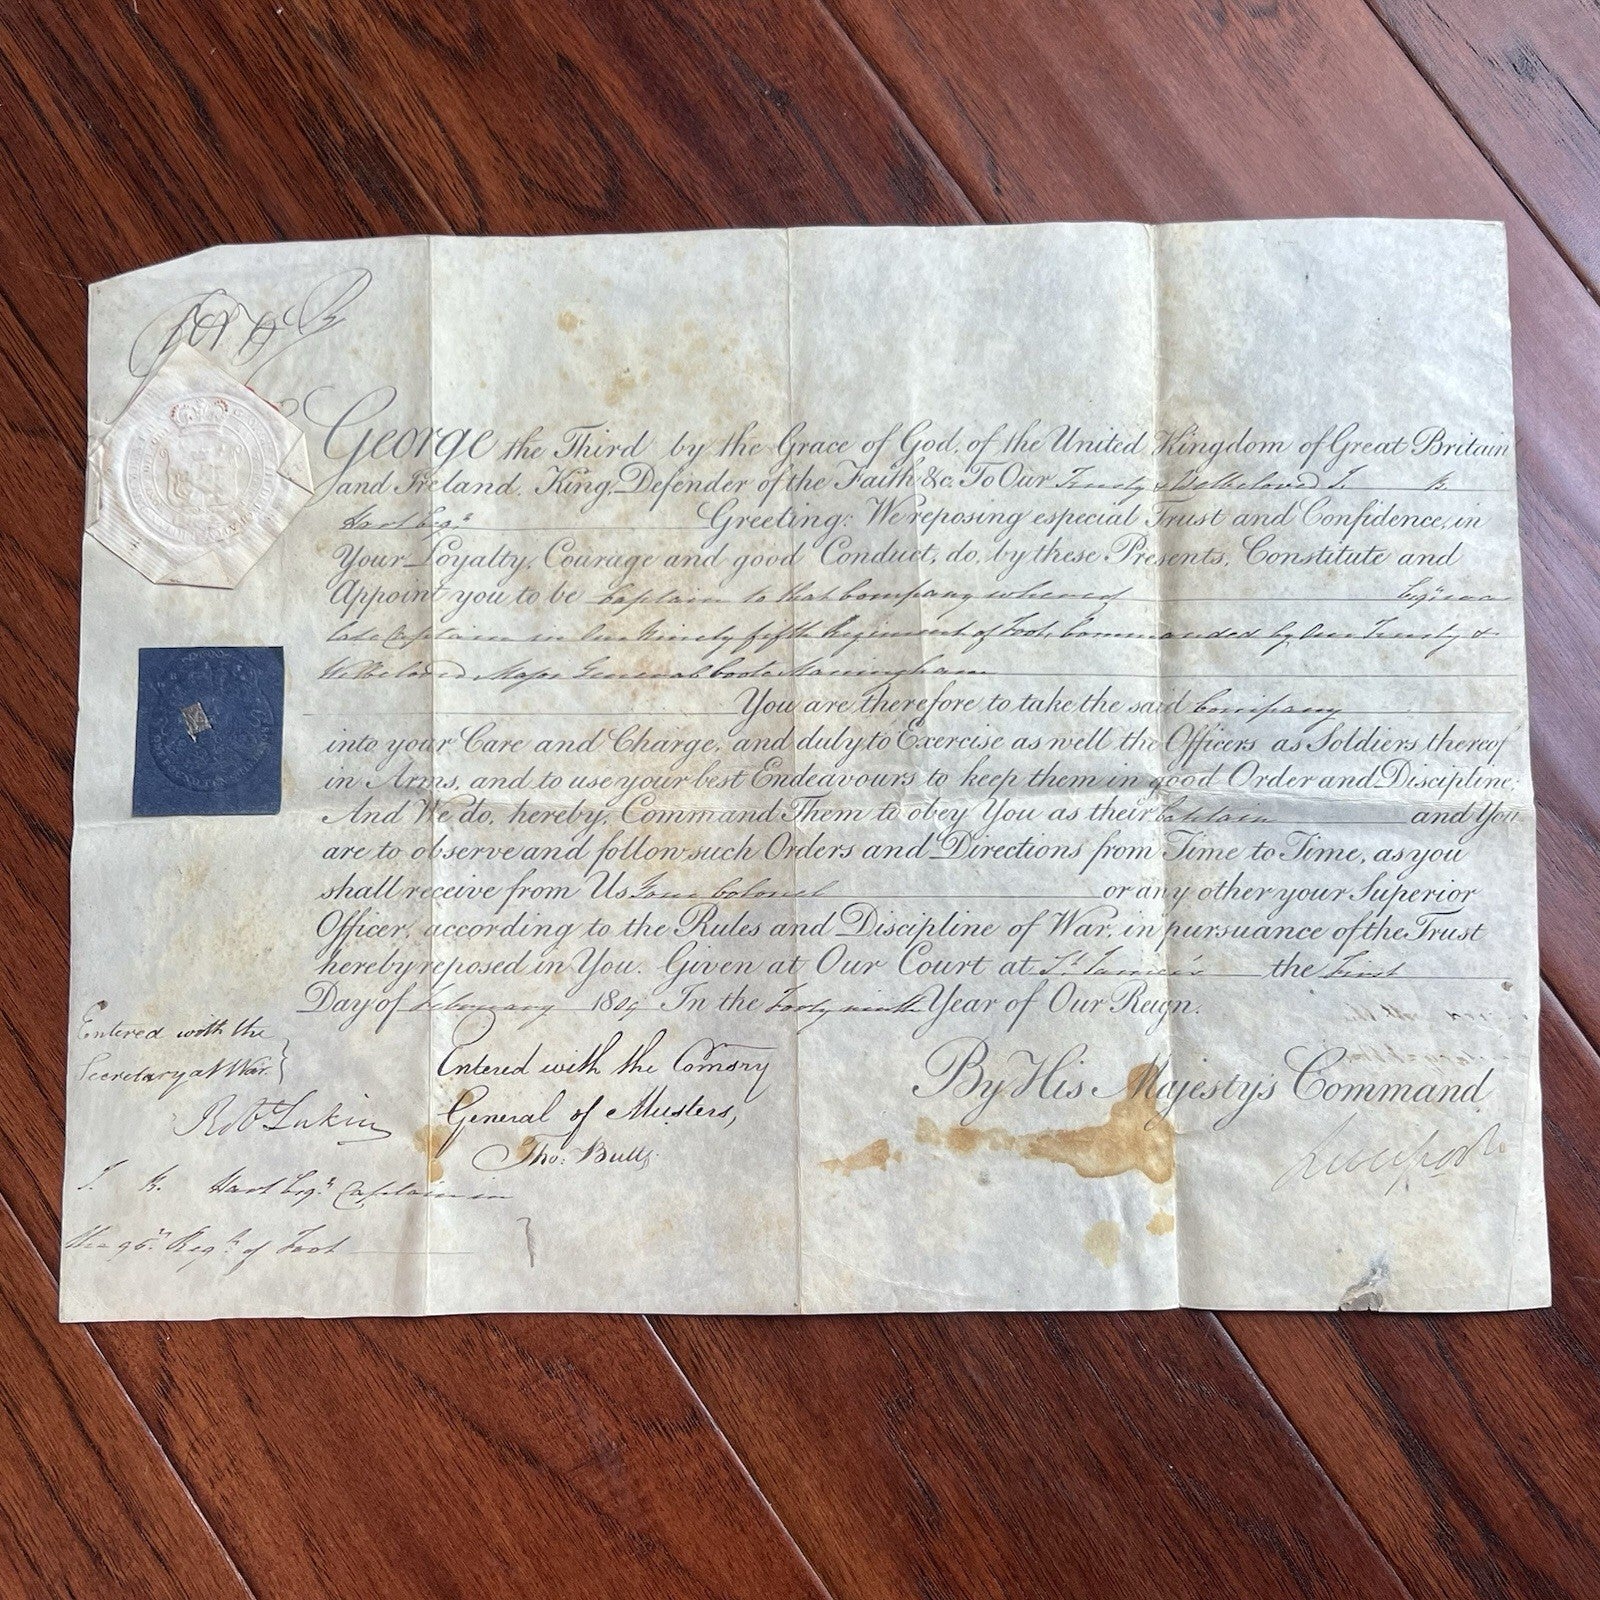 George the Third by the Grace of God, of the United Kingdom of Great Britain
and Ireland, King, Defender of the Faith &c. To Our Trusty & Welbeloved J. K.
Hart Esqr. Greeting: We reposing especial Trust and Confidence, in
Your Loyalty, Courage and good Conduct, do, by these Presents, Constitute and
Appoint you to be Captain to that Company whereof Esqr. was
late Captain in Our Ninety fifth Regiment of Foot, Commanded by Our Trusty &
Welbeloved Major General Coote Maningham
You are therefore to take the said Company
into your Care and Charge, and duly to Exercise as well the Officers as Soldiers thereof
in Arms, and to use your best Endeavours to keep them in good Order and Discipline;
And We do, hereby, Command Them to obey You as their Captain and You
are to observe and follow such Orders and Directions from Time to Time, as you
shall receive from Us, Your Colonel or any other your Superior
Officer, according to the Rules and Discipline of War, in pursuance of the Trust
hereby reposed in You. Given at Our Court at St. James's the First
Day of February 1809 In the Forty ninth Year of Our Reign.
By His Majesty's Command
Liverpool
Entered with the
Secretary at War
Entered with the Comsry
General of Musters,
Tho: Butts
J. K. Hart Esqr. Captain in
the 95th. Regt. of Foot